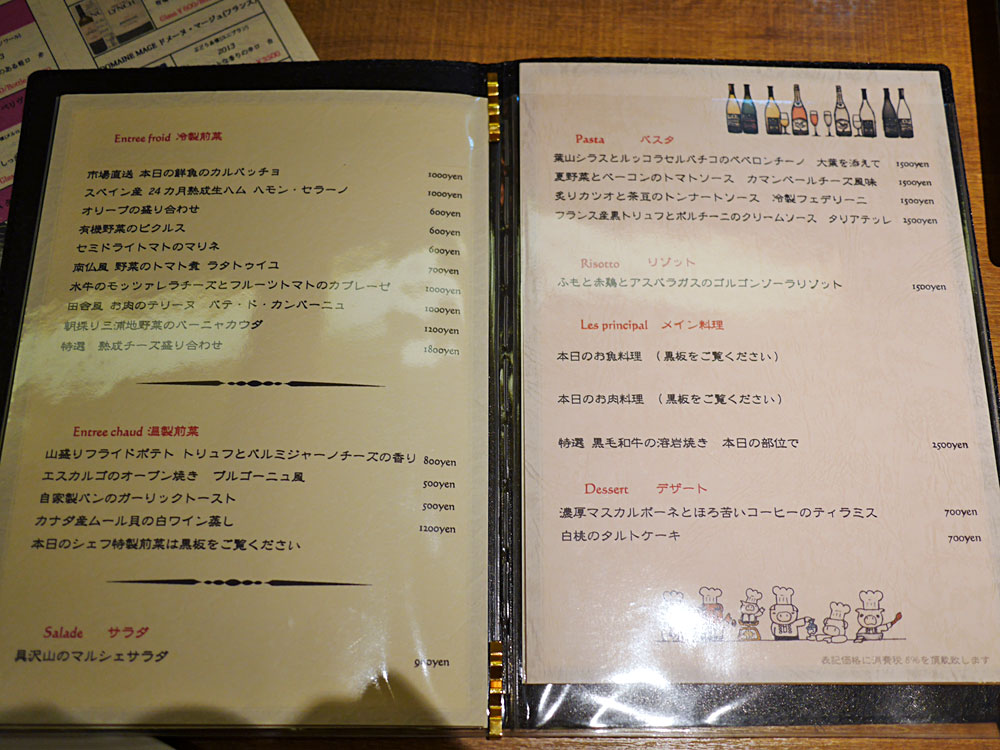 LYNCH
DOMAINE MAGE ドメーヌ・マージュ(フランス)
2013
Entree froid 冷製前菜
市場直送 本日の鮮魚のカルパッチョ 1000yen
スペイン産 24カ月熟成生ハム ハモン・セラーノ 1000yen
オリーブの盛り合わせ 600yen
有機野菜のピクルス 600yen
セミドライトマトのマリネ 600yen
南仏風 野菜のトマト煮 ラタトゥイユ 700yen
水牛のモッツァレラチーズとフルーツトマトのカプレーゼ 1000yen
田舎風 お肉のテリーヌ パテ・ド・カンパーニュ 1000yen
朝採り三浦地野菜のバーニャカウダ 1200yen
特選 熟成チーズ盛り合わせ 1800yen
Entree chaud 温製前菜
山盛りフライドポテト トリュフとパルミジャーノチーズの香り 800yen
エスカルゴのオーブン焼き ブルゴーニュ風 500yen
自家製パンのガーリックトースト 500yen
カナダ産ムール貝の白ワイン蒸し 1200yen
本日のシェフ特製前菜は黒板をご覧ください
Salade サラダ
具沢山のマルシェサラダ 900yen
Pasta パスタ
葉山シラスとルッコラセルバチコのペペロンチーノ 大葉を添えて 1500yen
夏野菜とベーコンのトマトソース カマンベールチーズ風味 1500yen
炙りカツオと茶豆のトンナートソース 冷製フェデリーニ 1500yen
フランス産黒トリュフとポルチーニのクリームソース タリアテッレ 2500yen
Risotto リゾット
ふもと赤鶏とアスパラガスのゴルゴンゾーラリゾット 1500yen
Les principal メイン料理
本日のお魚料理 (黒板をご覧ください)
本日のお肉料理 (黒板をご覧ください)
特選 黒毛和牛の溶岩焼き 本日の部位で 2500yen
Dessert デザート
濃厚マスカルポーネとほろ苦いコーヒーのティラミス 700yen
白桃のタルトケーキ 700yen
表記価格に消費税8%を頂戴致します